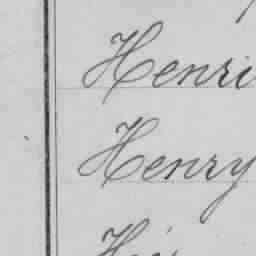 Henri
Henry